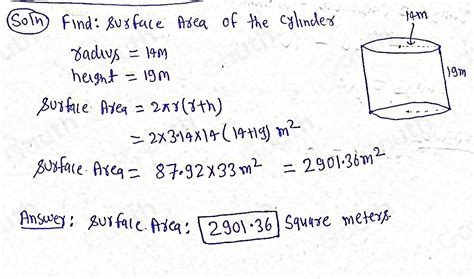 Soln Find: Surface Area of the Cylinder
radius = 14m
height = 19m
Surface Area = 2πr(r+h)
= 2×3.14×14(14+19) m²
Surface Area = 87.92×33m² = 2901.36m²
Answer: Surface Area: 2901.36 Square meters
14m
19m